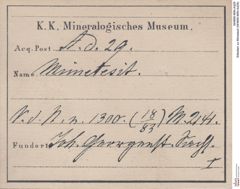 K. K. Mineralogisches Museum.
Acq. Post A. d. 29.
Name: Mimetesit.
V. d. N. n. 1300. (18/83) M. 244.
Fundort Joh. Georgenst. Sachs.
I